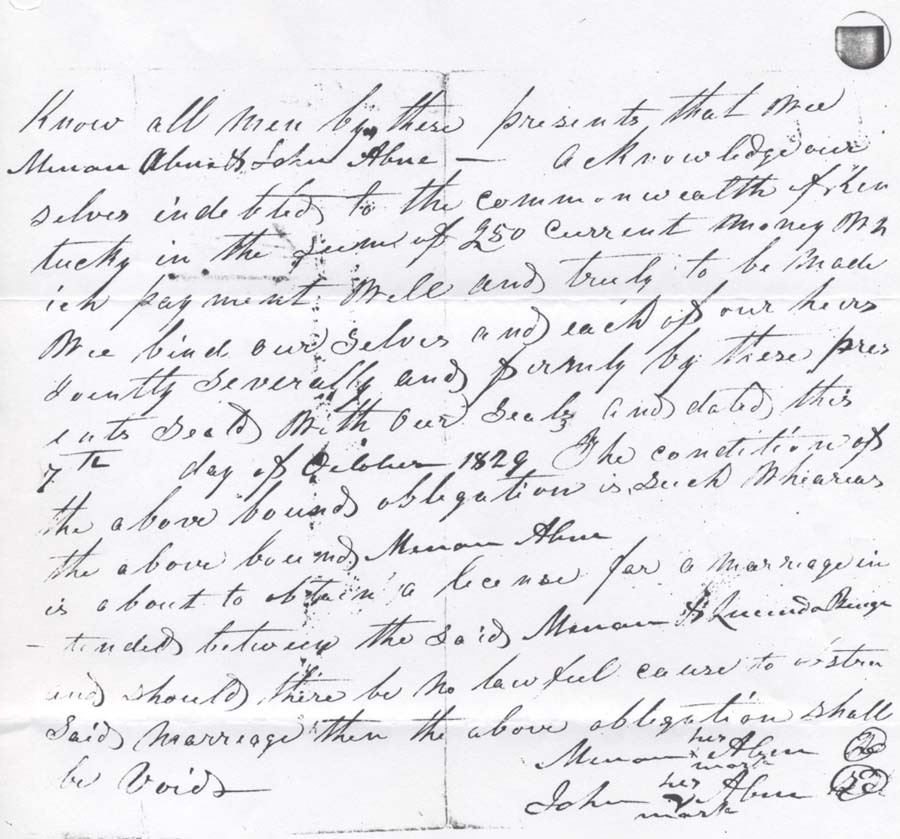 Know all men by these presents that Wee
Menan Abne & John Abne — acknowledge our
selves indebted to the commonwealth of Ken
tucky in the sum of 250 current money Wh
ich payment Well and truly to be Made
Wee bind our selves and each of our heirs
Jointly severally and firmly by these pres
ents Seald With our Seals and dated this
7th day of October 1829 The condition of
the above bound obligation is such Wheareas
the above bound Menan Abne
is about to obtain a license for a marriage in
- tended between the said Menan & Lucinda
and should there be no lawful cause to
Said marriage then the above obligation shall
be Void
Menan his x mark Abne
John his x mark Abne